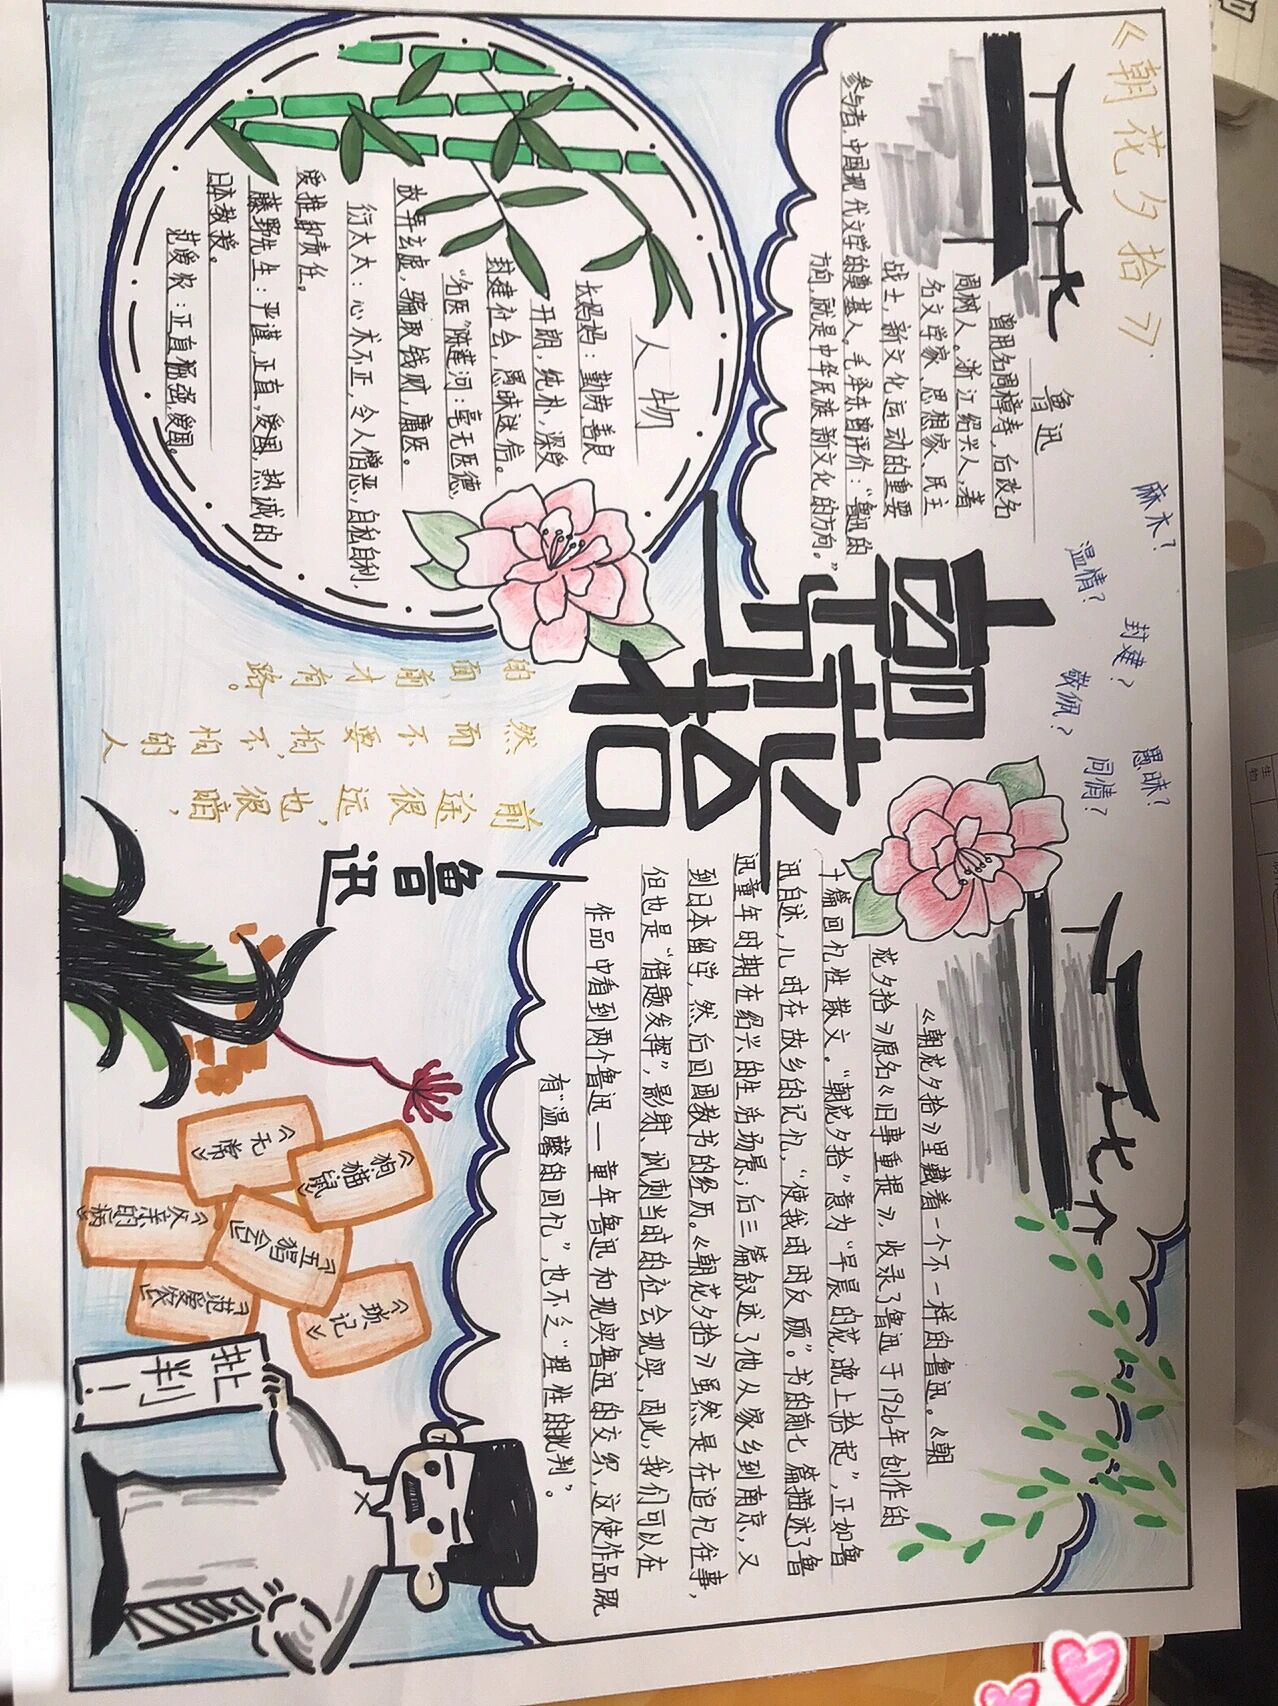 《朝花夕拾》
麻木?
温情?
封建?
敬佩?
愚昧?
同情?
朝花夕拾
鲁迅
曾用名周樟寿,后改名
周树人。浙江绍兴人,著
名文学家、思想家、民主
战士,新文化运动的重要
参与者,中国现代文学的奠基人。毛泽东曾评价:“鲁迅的
方向,就是中华民族新文化的方向。”
简介
《朝花夕拾》里藏着一个不一样的鲁迅。《朝
花夕拾》原名《旧事重提》,收录了鲁迅于1926年创作的
十篇回忆性散文。“朝花夕拾”意为“早晨的花,晚上拾起”,正如鲁
迅自述,儿时在故乡的记忆,“使我时时反顾”。书的前七篇描述了鲁
迅童年时期在绍兴的生活场景;后三篇叙述了他从家乡到南京,又
到日本留学,然后回国教书的经历。《朝花夕拾》虽然是在追忆往事,
但也是“借题发挥”,影射、讽刺当时的社会现实,因此,我们可以在
作品中看到两个鲁迅——童年鲁迅和现实鲁迅的交织,这使作品既
有“温馨的回忆”,也不乏“理性的批判”。
人物
长妈妈:勤劳善良
开朗,纯朴,深受
封建社会,愚昧迷信。
“名医”陈莲河:毫无医德,
故弄玄虚,骗取钱财,庸医。
衍太太:心术不正,令人憎恶,自私自利,
爱推卸责任。
藤野先生:严谨,正直,爱国,热诚的
日本教授。
范爱农:正直倔强爱国。
前途很远,也很暗,
然而不要怕,不怕的人
的面前才有路。
——鲁迅
《狗猫鼠》
《无常》
《五猖会》
《父亲的病》
《琐记》
《范爱农》
批判!